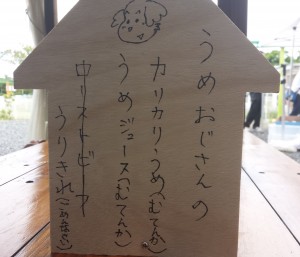 うめおじさんの
カリカリうめ(むてんか)
うめジュース(むてんか)
ローストビーフ
うりきれ(ごめんなさい)